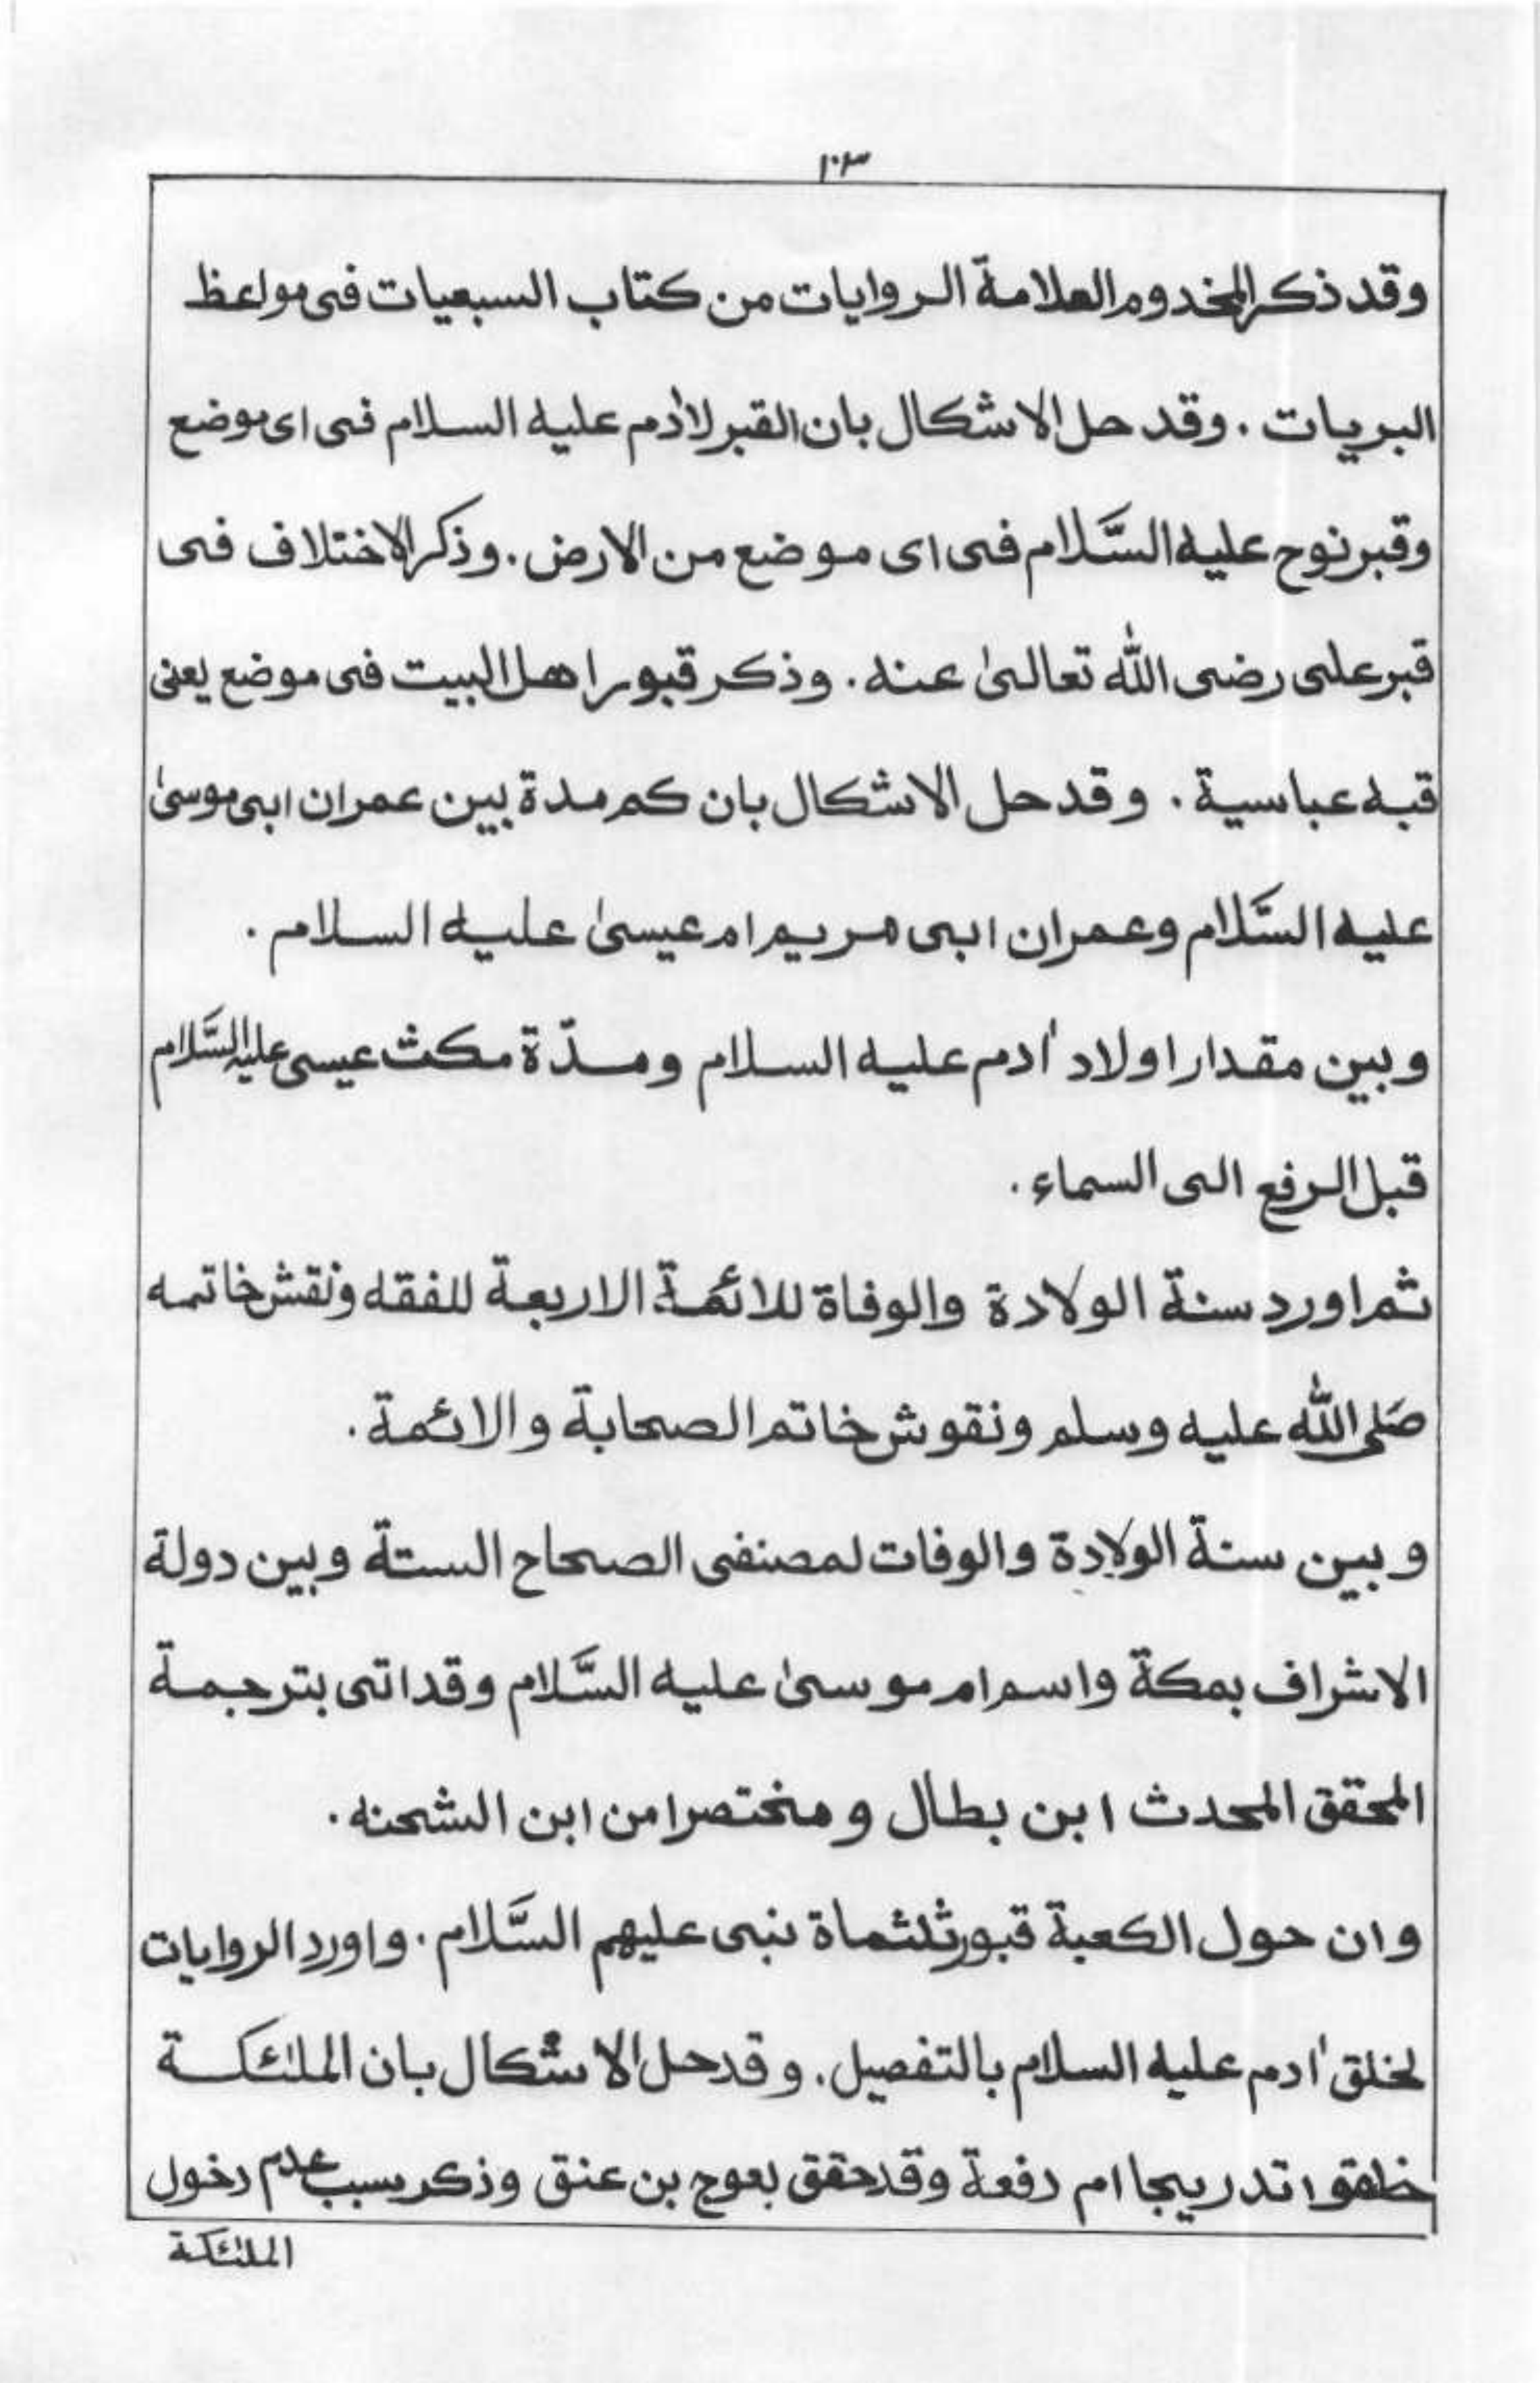 ١٠٣
وقد ذكر المخدوم العلامة الروايات من كتاب السبعيات فى مواعظ
البريات . وقد حل الاشكال بان القبر لأدم عليه السلام فى اى موضع
وقبر نوح عليه السَّلام فى اى موضع من الارض . وذكر الاختلاف فى
قبر على رضى الله تعالىٰ عنه . وذكر قبور اهل البيت فى موضع يعنى
قبه عباسية . وقد حل الاشكال بان كم مدة بين عمران ابى موسىٰ
عليه السَّلام وعمران ابى مريم ام عيسىٰ عليه السلام .
وبين مقدار اولاد أدم عليه السلام ومدّة مكث عيسى عليه السَّلام
قبل الرفع الى السماء .
ثم اورد سنة الولادة والوفاة للائمة الاربعة للفقه ونقش خاتمه
صَلى الله عليه وسلم ونقوش خاتم الصحابة والائمة .
وبين سنة الولادة والوفات لمصنفى الصحاح الستة وبين دولة
الاشراف بمكة واسم ام موسىٰ عليه السَّلام وقد اتى بترجمة
المحقق المحدث ابن بطال ومختصرا من ابن الشحنه .
وان حول الكعبة قبور ثلثماة نبى عليهم السَّلام . واورد الروايات
لخلق أدم عليه السلام بالتفصيل . وقد حل الاشكال بان الملئكة
خلقوا تدريجا ام دفعة وقد حقق بعوج بن عنق وذكر سبب عدم دخول
الملئكة